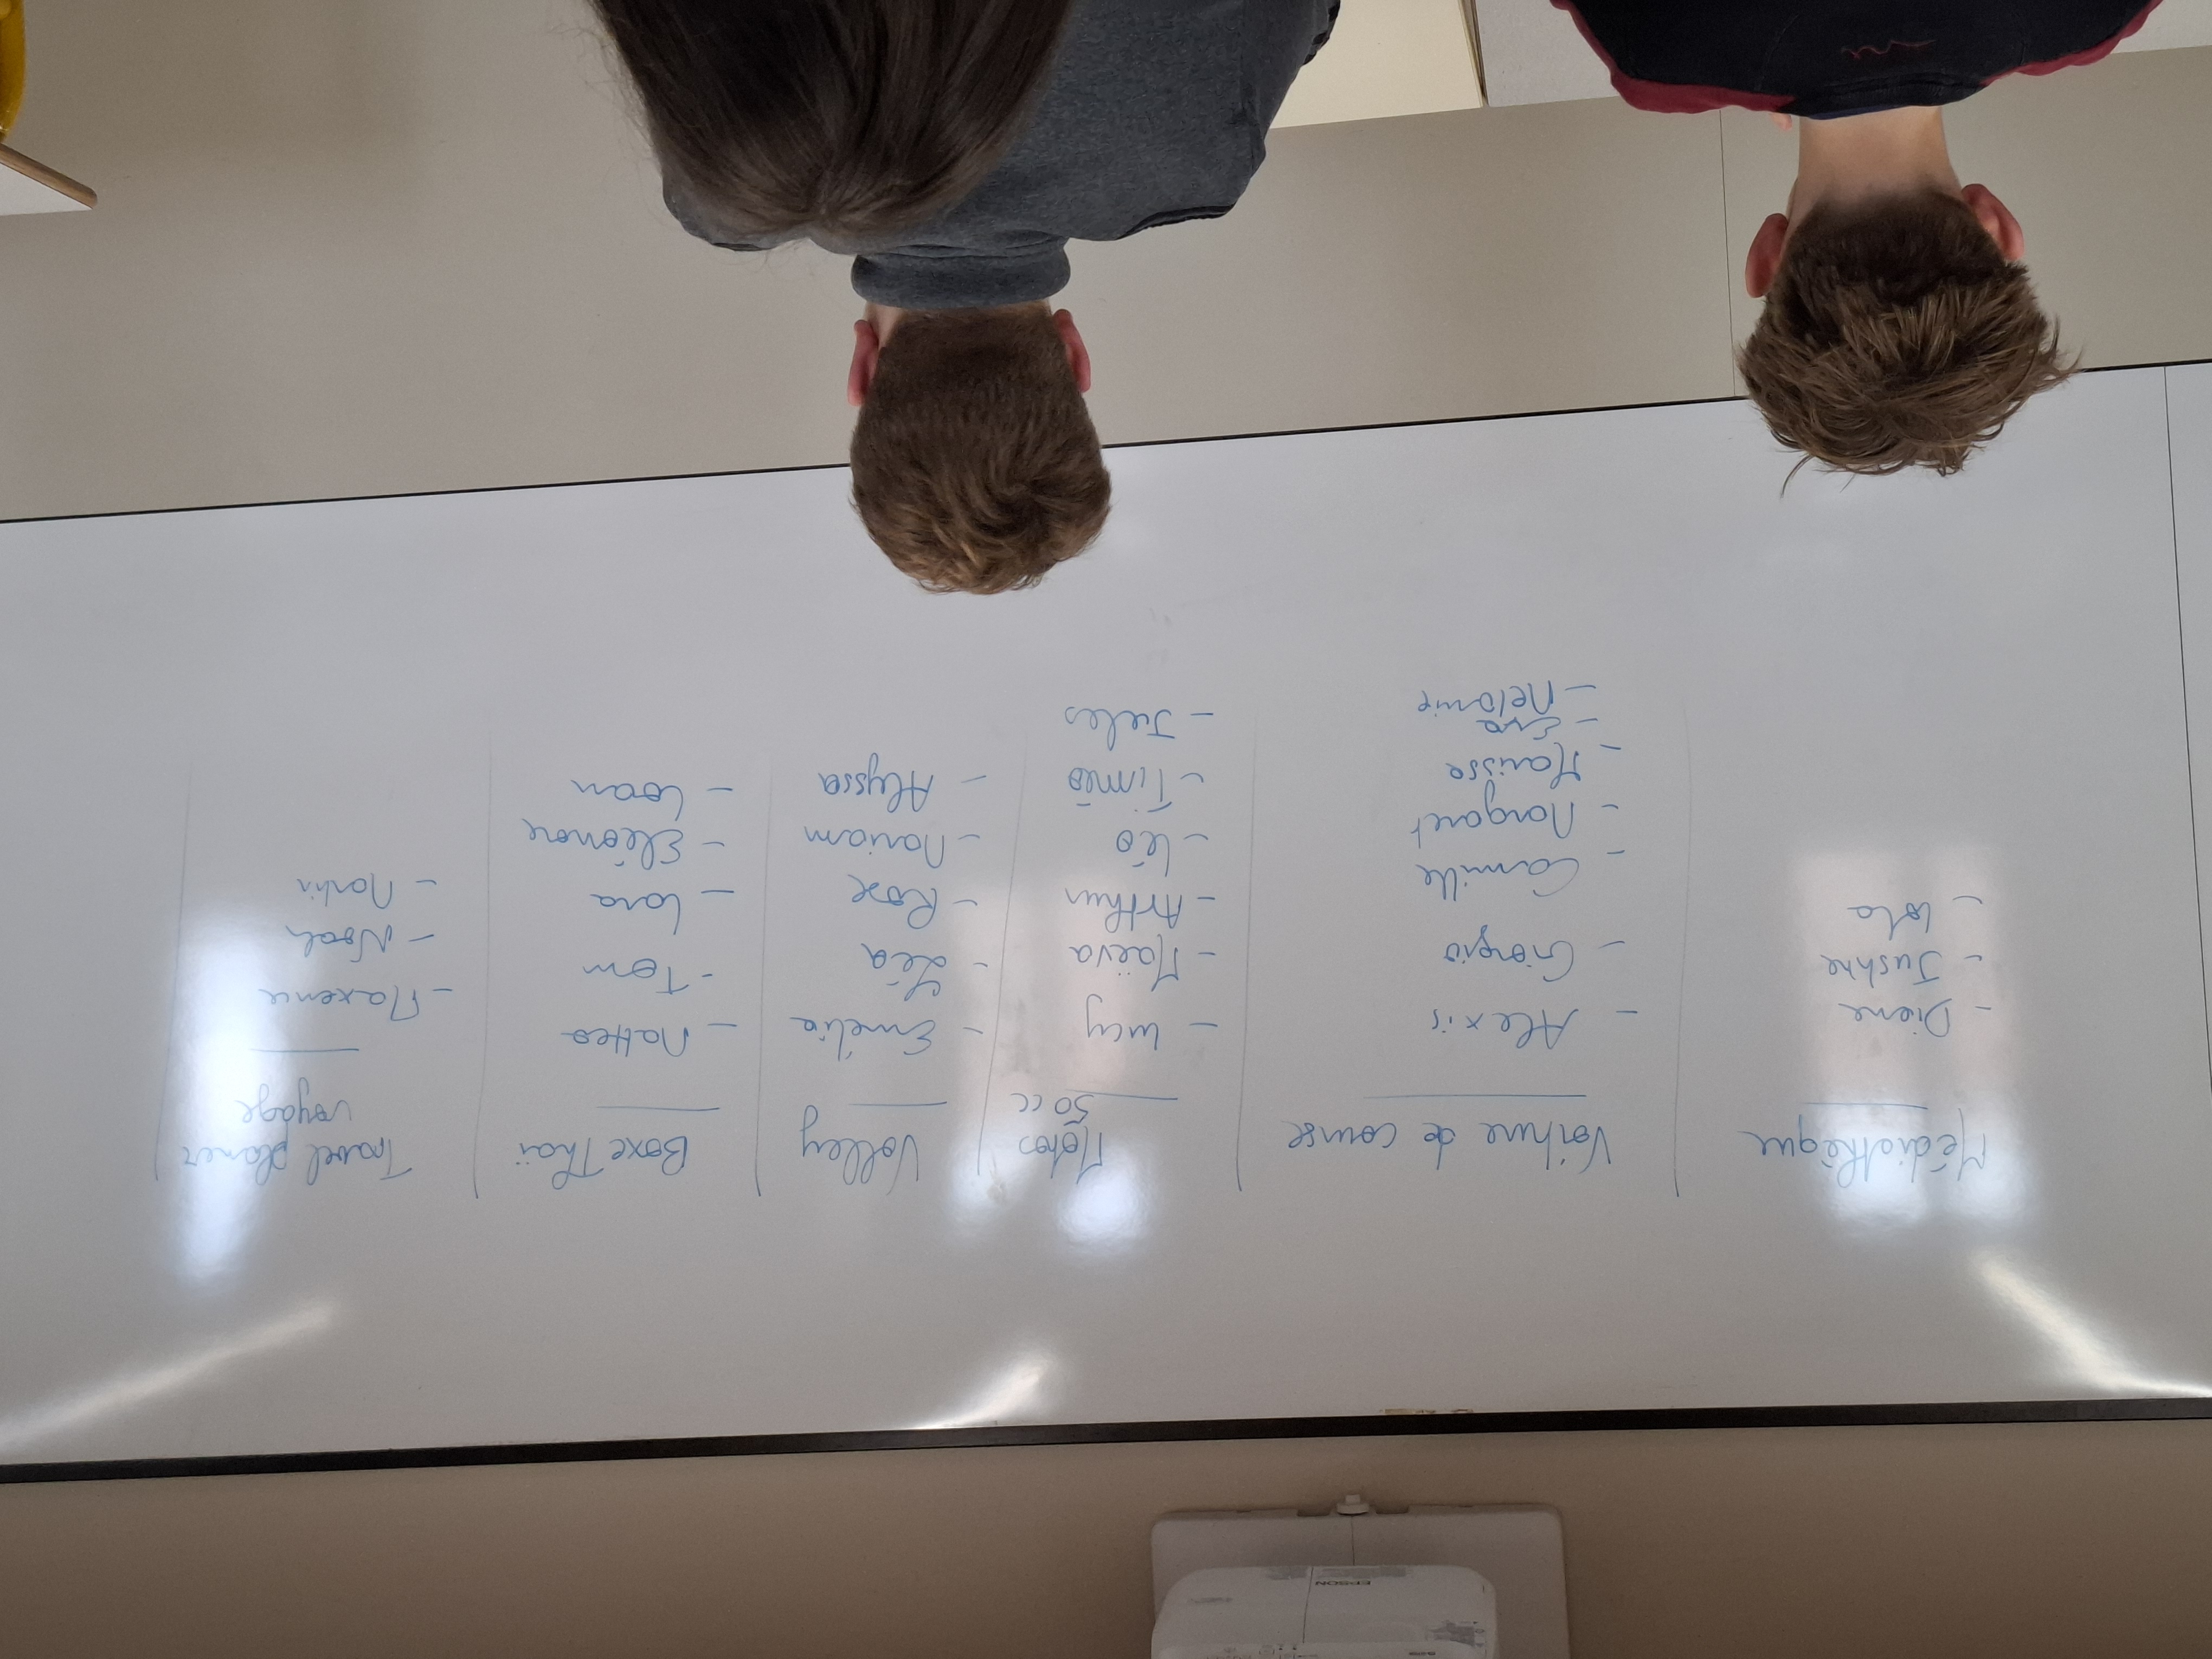 Médiathèque
- Diane
- Justine
- Lola
Voiture de course
- Alexis
- Giorgio
- Camille
- Margaret
- Maïsse
- Eva
- Mélanie
Motos
50 cc
- Lucy
- Maëva
- Arthur
- Léo
- Timéo
- Jules
Volley
- Emélie
- Léa
- Rose
- Mariam
- Alyssa
Boxe Thaï
- Mattéo
- Tom
- Lara
- Eléonore
- Loan
Travel planer
voyage
- Maxence
- Noah
- Martin
EPSON